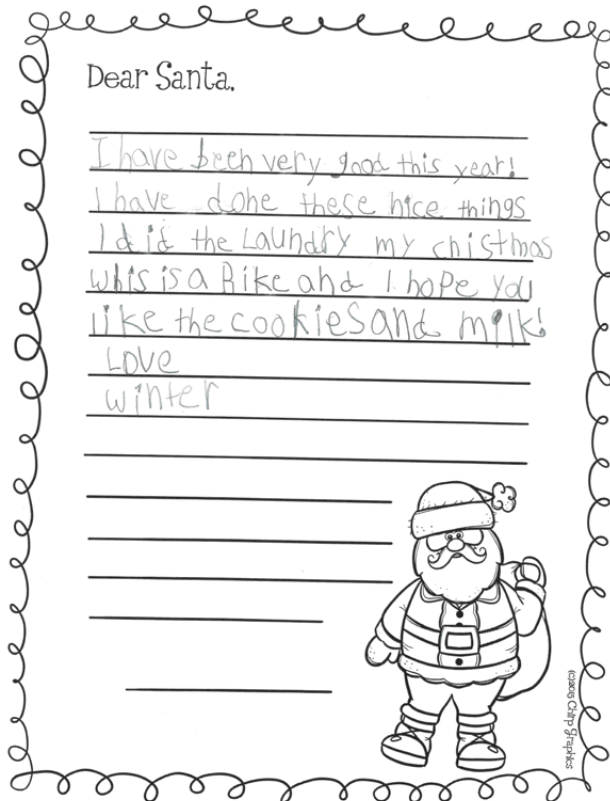 Dear Santa,
I have been very good this year!
I have done these nice things
I did the Laundry my chistmas
whis is a Bike and I hope you
like the cookies and milk!
Love
winter
(c)2015 Chirp Graphics